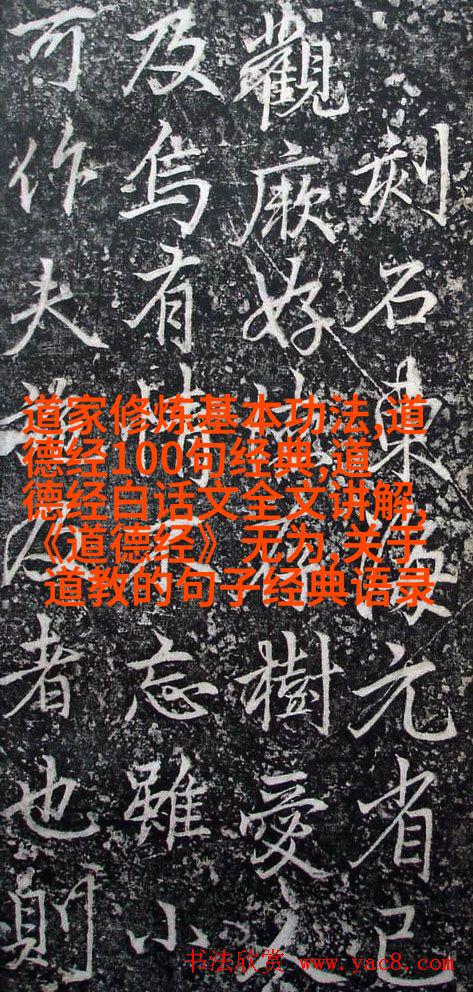 刻石東元省已
觀厥好樹愛
及烏有情忘雖小
可作夫者也則
道家修炼基本功法,道
德经100句经典,道
德经白话文全文讲解,
《道德经》无为,关于
道教的句子经典语录
书法欣赏 www.yac8.com